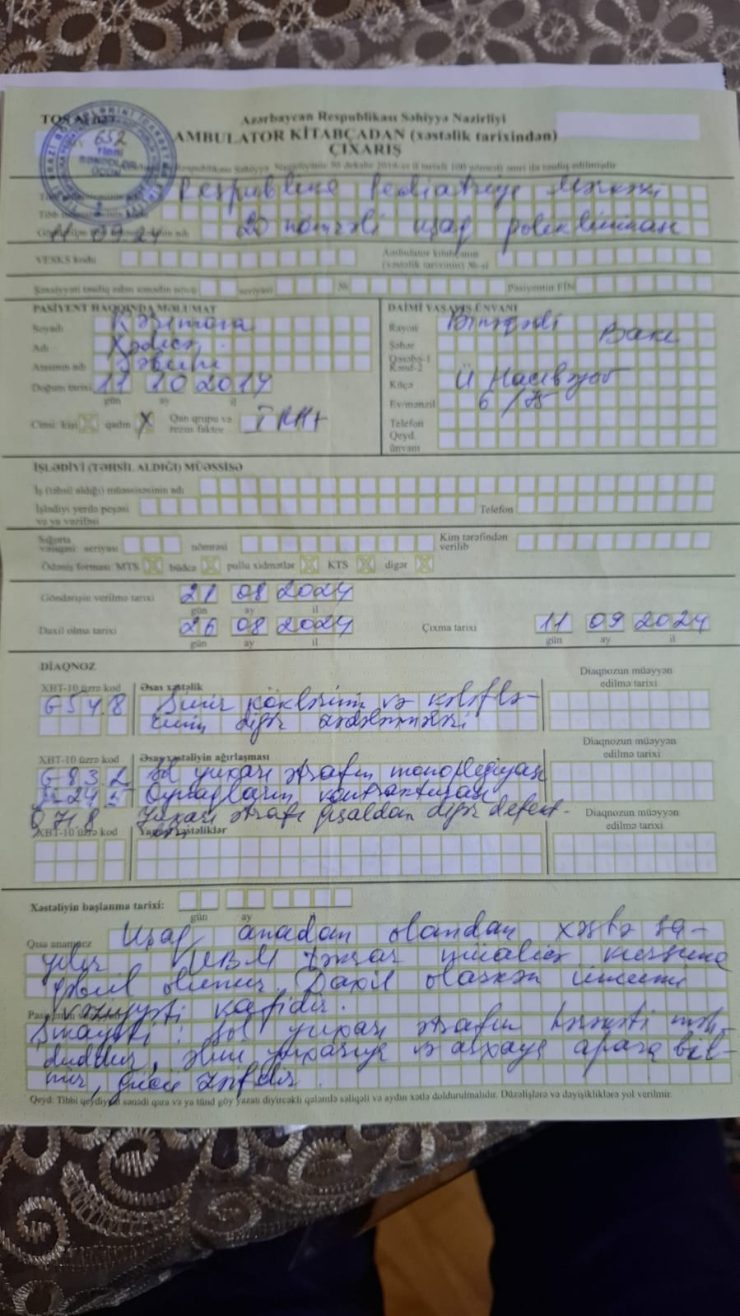 Azərbaycan Respublikası Səhiyyə Nazirliyi
AMBULATOR KİTABÇADAN (xəstəlik tarixindən)
ÇIXARIŞ
652
Respublika Pediatriya Mərkəzi
11 09 24 20 nömrəli uşaq poliklinikası
VENKS kodu Ambulator kitabçanın
(xəstəlik tarixinin) №-si
Şəxsiyyəti təsdiq edən sənədin növü seriyası № Pasiyentin FİN
PASİYENT HAQQINDA MƏLUMAT DAİMİ YAŞAYIŞ ÜNVANI
Soyadı Kazımova Rayon Binəqədi
Adı Şəhər Bakı
Atasının adı Qəsəbə-1
Kənd-2
Doğum tarixi 11 10 2017 Küçə Ü Hacıbəyov
gün ay il Ev/mənzil 6/75
Cinsi: kişi qadın X Qan qrupu və rezus faktor I RH+ Telefon
Qeyd. ünvanı
İŞLƏDİYİ (TƏHSİL ALDIĞI) MÜƏSSİSƏ
İş (təhsil aldığı) müəssisəsinin adı
İşlədiyi yerdə peşəsi Telefon
və ya vəzifəsi
Sığorta vəsiqəsi: seriyası nömrəsi Kim tərəfindən verilib
Ödəniş forması: MTS büdcə pullu xidmətlər KTS digər
Göndərişin verilmə tarixi 21 08 2024
gün ay il
Daxil olma tarixi 26 08 2024 Çıxma tarixi 11 09 2024
gün ay il gün ay il
DİAQNOZ
XBT-10 üzrə kod Əsas xəstəlik Diaqnozun müəyyən edilmə tarixi
G 54 8 Sinir köklərinin və kələflə-
rinin digər zədələnmələri
XBT-10 üzrə kod Əsas xəstəliyin ağırlaşması Diaqnozun müəyyən edilmə tarixi
G 83 2 Sol yuxarı ətrafın monoplegiyası
24 5 Oynaqların kontrakturası
Q 71 8 Yuxarı ətrafı qısaldan digər defekt-
XBT-10 üzrə kod Yanaşı xəstəliklər Diaqnozun müəyyən edilmə tarixi
Xəstəliyin başlanma tarixi:
gün ay il
Qısa anamnez Uşaq anadan olandan xəstə sa-
yılır. müalicə kursuna
qəbul olunur. Daxil olarkən ümumi
vəziyyəti kafidir.
Şikayəti: Sol yuxarı ətrafın hərəkəti məh-
duddur, əlini yuxarıya və arxaya apara bil-
mir, gücü zəifdir.
Qeyd: Tibbi qeydiyyat sənədi qara və ya tünd göy yazan diyircəkli qələmlə səliqəli və aydın xətlə doldurulmalıdır. Düzəlişlərə və dəyişikliklərə yol verilmir.